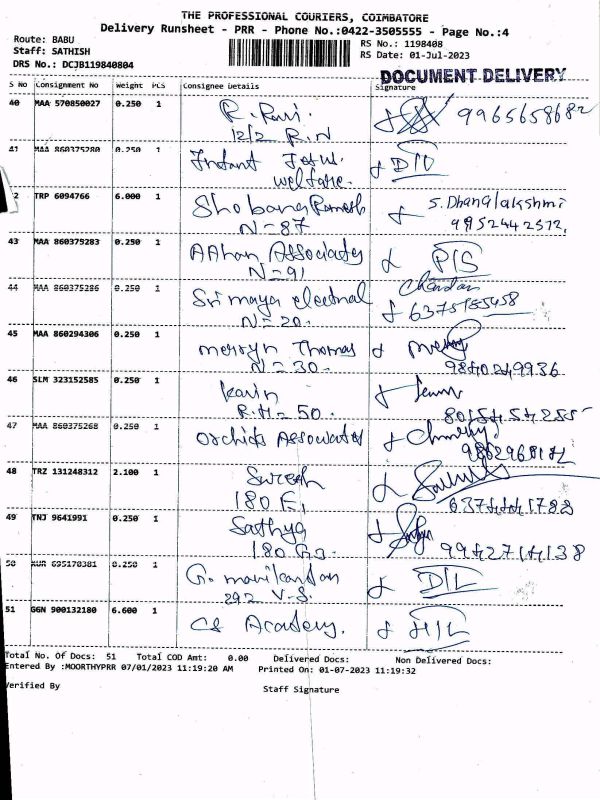 THE PROFESSIONAL COURIERS, COIMBATORE
Delivery Runsheet - PRR - Phone No.:0422-3505555 - Page No.:4
Route: BABU
Staff: SATHISH
RS No.: 1198408
RS Date: 01-Jul-2023
DRS No.: DCJB119840804
DOCUMENT DELIVERY
S No Consignment No Weight PCS Consignee Details Signature
40 MAA 570850027 0.250 1 R. Ravi. 9965658682
12/2 R.N
41 MAA 860375280 0.250 1 Infant Jesus. DIL
welfare.
TRP 6094766 6.000 1 Shobana Ramesh S. Dhanalakshmi
N=87 9952442572,
43 MAA 860379283 0.250 1 Associates
N=91
44 MAA 860375286 0.250 1 Sri maya electrical Chandan
N=20. 6375155458
45 MAA 860294306 0.250 1 merryn Thomas
N=30. 9840249936
46 SLM 323152585 0.250 1 Kavin
R.H=50. 8015454255
47 MAA 860375268 0.250 1 Orchids Associates
9862968182
48 TRZ 131248312 2.100 1 Suresh
180 F, 6374441788
49 TNJ 9641991 0.250 1 Sathya
180 9942714138
50 KUR 695170381 0.250 1 G. manikandan DIL
292 V.S.
51 GGN 900132180 6.600 1 CS Academy. HIL
Total No. Of Docs: 51 Total COD Amt: 0.00 Delivered Docs: Non Delivered Docs:
Entered By :MOORTHYPRR 07/01/2023 11:19:20 AM Printed On: 01-07-2023 11:19:32
Verified By Staff Signature